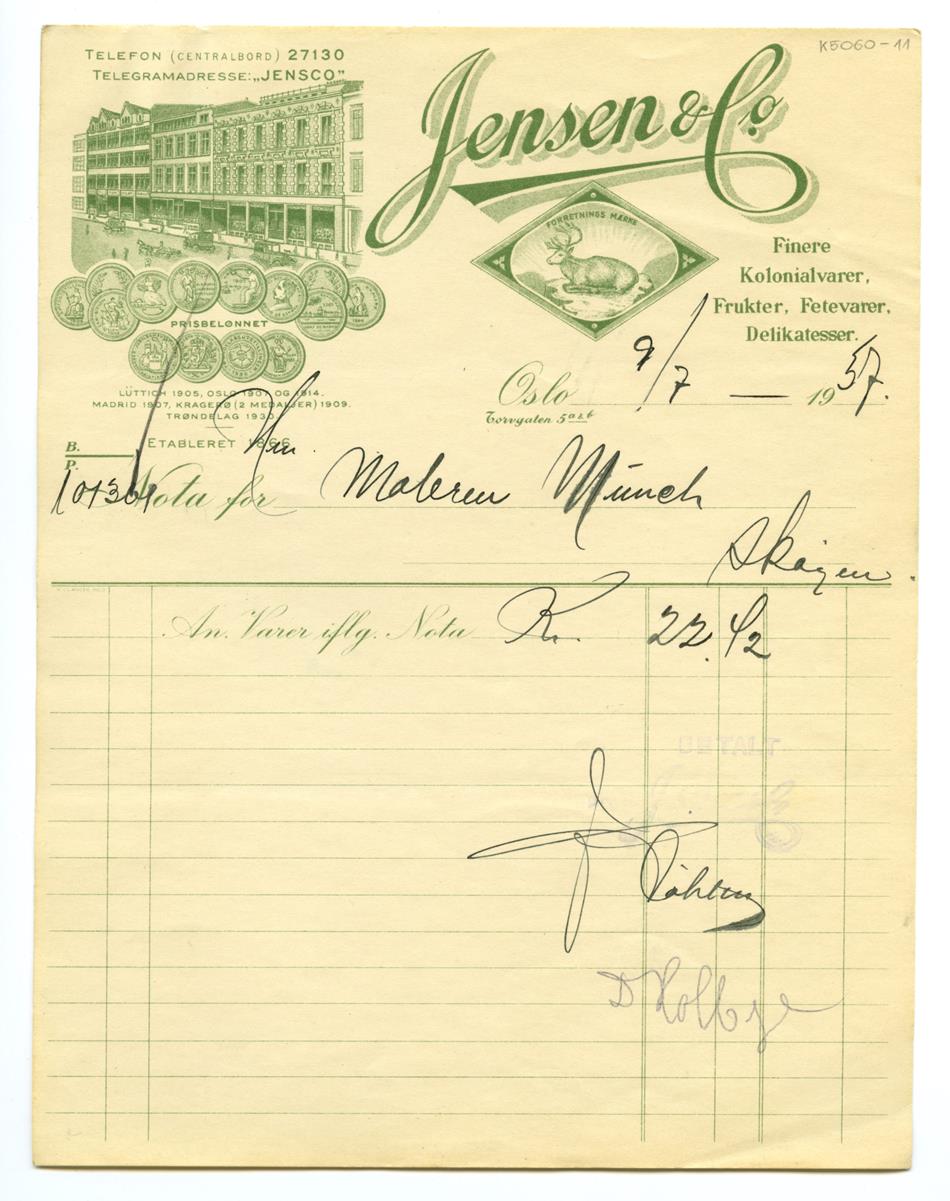 K5060-11
TELEFON (CENTRALBORD) 27130
TELEGRAMADRESSE: „JENSCO"
Jensen & Co.
FORRETNINGS MÆRKE
Finere
Kolonialvarer,
Frukter, Fetevarer,
Delikatesser.
PRISBELØNNET
LÜTTICH 1905, OSLO 1907 OG 1914.
MADRID 1907, KRAGERØ (2 MEDALJER) 1909.
TRØNDELAG 1930.
ETABLERET 1866
Oslo 9/7 — 1937.
Torvgaten 5 a & b
B.
P.
Hrr.
Nota for Maleren Münch
Skøyen.
An. Varer iflg. Nota Kr. 22.42
BETALT
D Holbye